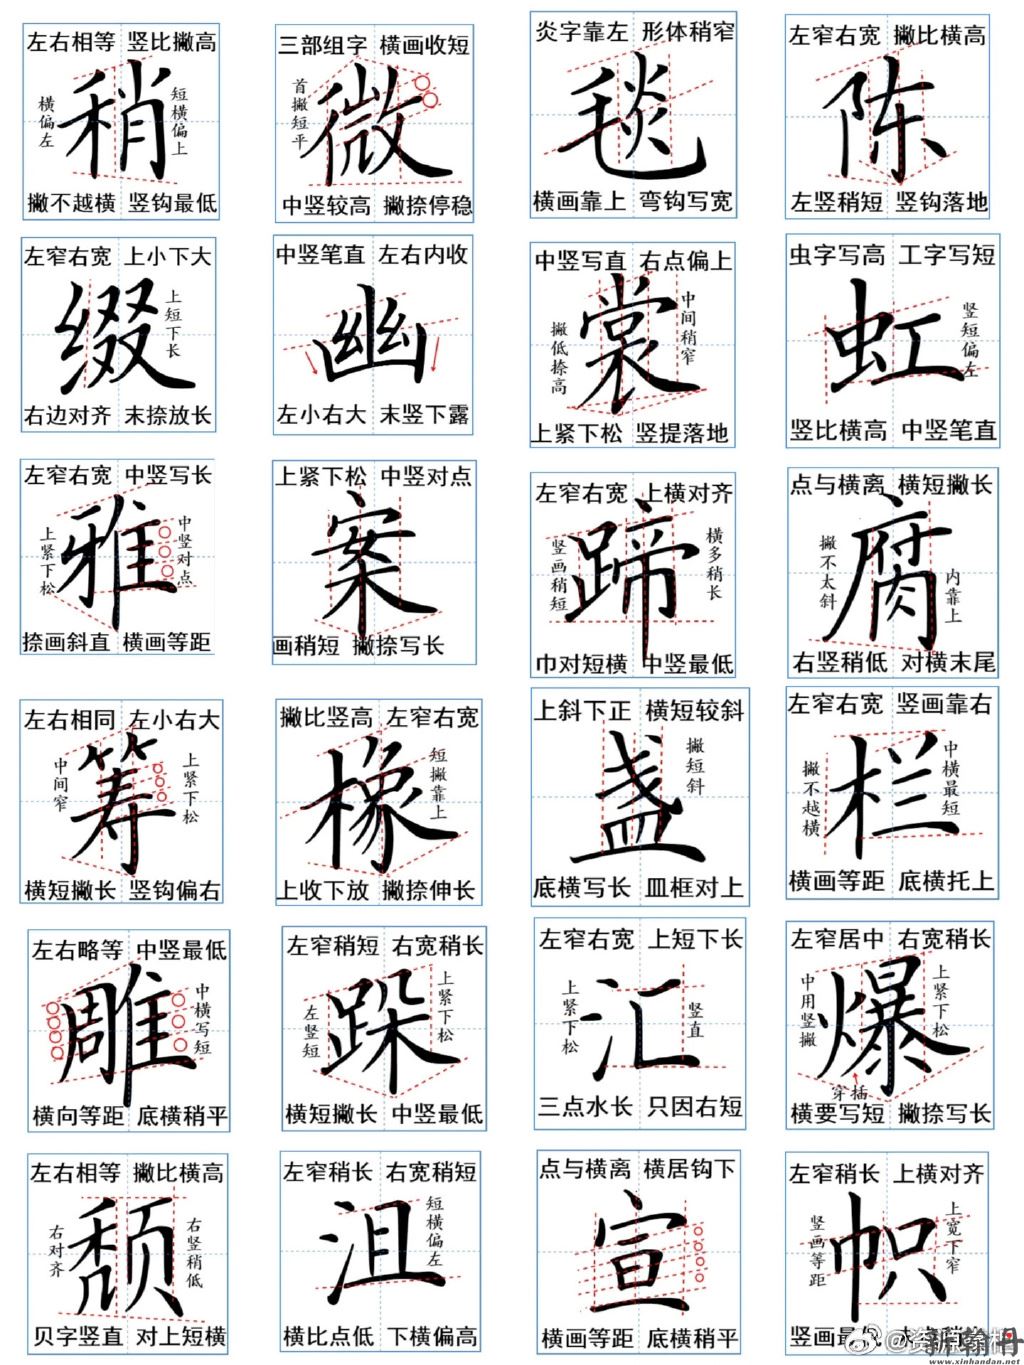 左右相等 竖比撇高
横偏左
稍
短横偏上
撇不越横 竖钩最低
三部组字 横画收短
首撇短平
微
中竖较高 撇捺停稳
炎字靠左 形体稍窄
毯
横画靠上 弯钩写宽
左窄右宽 撇比横高
陈
左竖稍短 竖钩落地
左窄右宽 上小下大
缀
上短下长
右边对齐 末捺放长
中竖笔直 左右内收
幽
左小右大 末竖下露
中竖写直 右点偏上
撇低捺高
裳
中间稍窄
上紧下松 竖提落地
虫字写高 工字写短
虹
竖短偏左
竖比横高 中竖笔直
左窄右宽 中竖写长
上紧下松
雅
中竖对点
捺画斜直 横画等距
上紧下松 中竖对点
案
画稍短 撇捺写长
左窄右宽 上横对齐
竖画稍短
蹄
横多稍长
巾对短横 中竖最低
点与横离 横短撇长
撇不太斜
腐
内靠上
右竖稍低 对横末尾
左右相同 左小右大
中间窄
筹
上紧下松
横短撇长 竖钩偏右
撇比竖高 左窄右宽
橡
短撇靠上
上收下放 撇捺伸长
上斜下正 横短较斜
盏
撇短斜
底横写长 皿框对上
左窄右宽 竖画靠右
撇不越横
栏
中横最短
横画等距 底横托上
左右略等 中竖最低
雕
中横写短
横向等距 底横稍平
左窄稍短 右宽稍长
左竖短
跺
上紧下松
横短撇长 中竖最低
左窄右宽 上短下长
上紧下松
汇
竖直
三点水长 只因右短
左窄居中 右宽稍长
中用竖撇
爆
上紧下松
穿插
横要写短 撇捺写长
左右相等 撇比横高
右对齐
颓
右竖稍低
贝字竖直 对上短横
左窄稍长 右宽稍短
沮
短横偏左
横比点低 下横偏高
点与横离 横居钩下
宣
横画等距 底横稍平
左窄稍长 上横对齐
竖画等距
帜
上宽下窄
竖画最
新翰丹
www.xinhandan.net